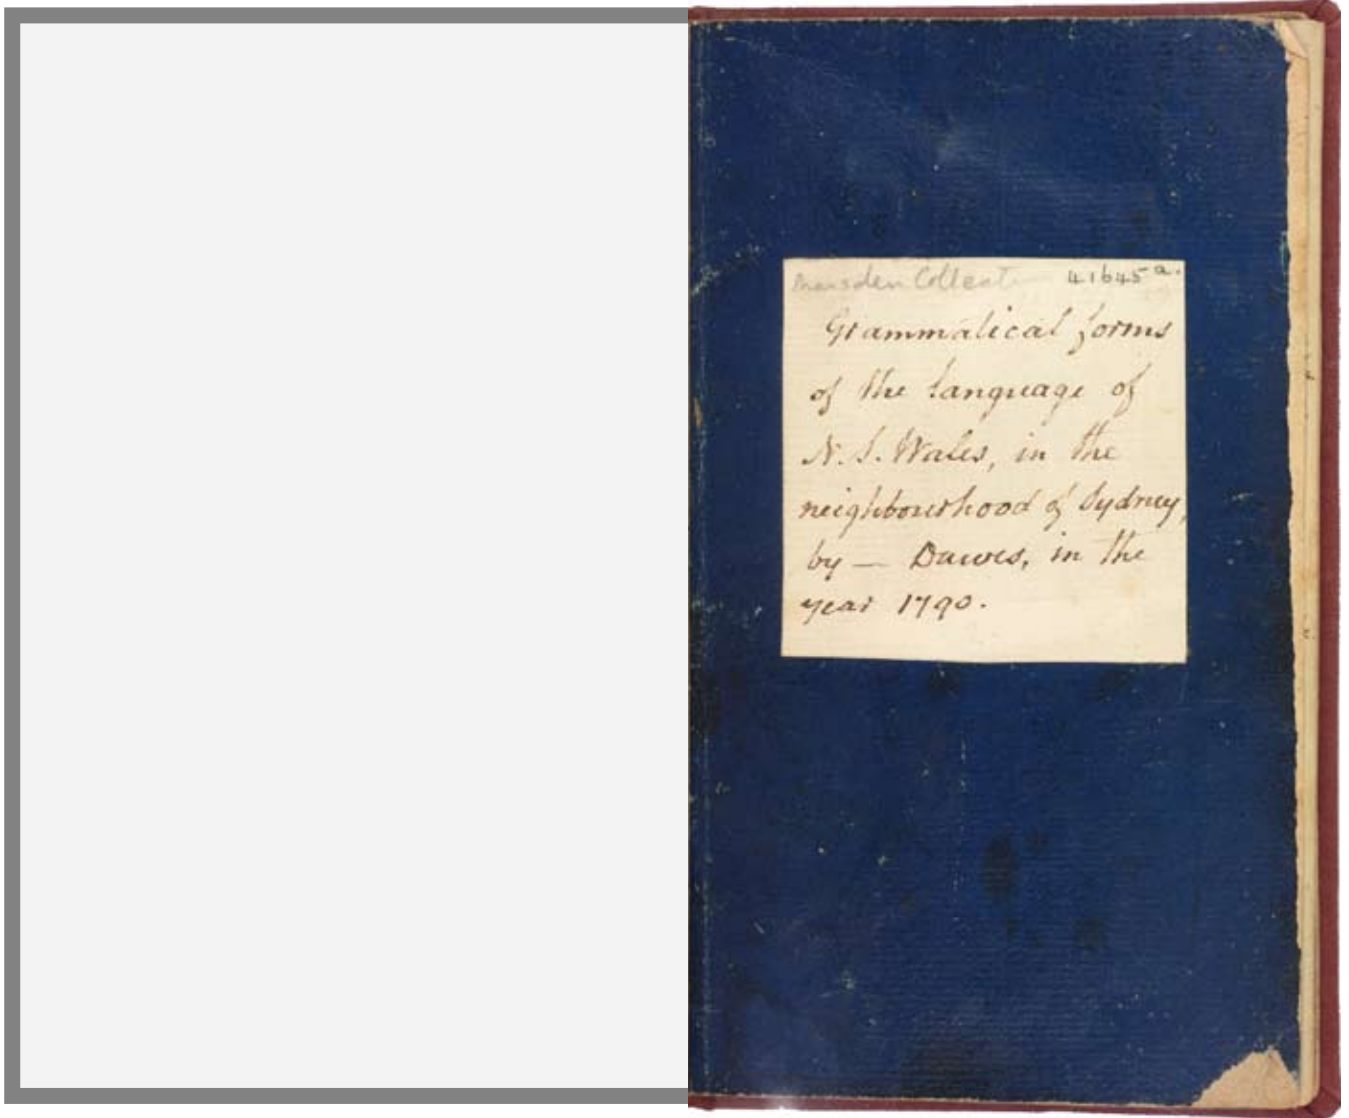 Marsden Collect 41645 a.
Grammatical forms
of the language of
N. S. Wales, in the
neighbourhood of Sydney,
by — Dawes, in the
year 1790.